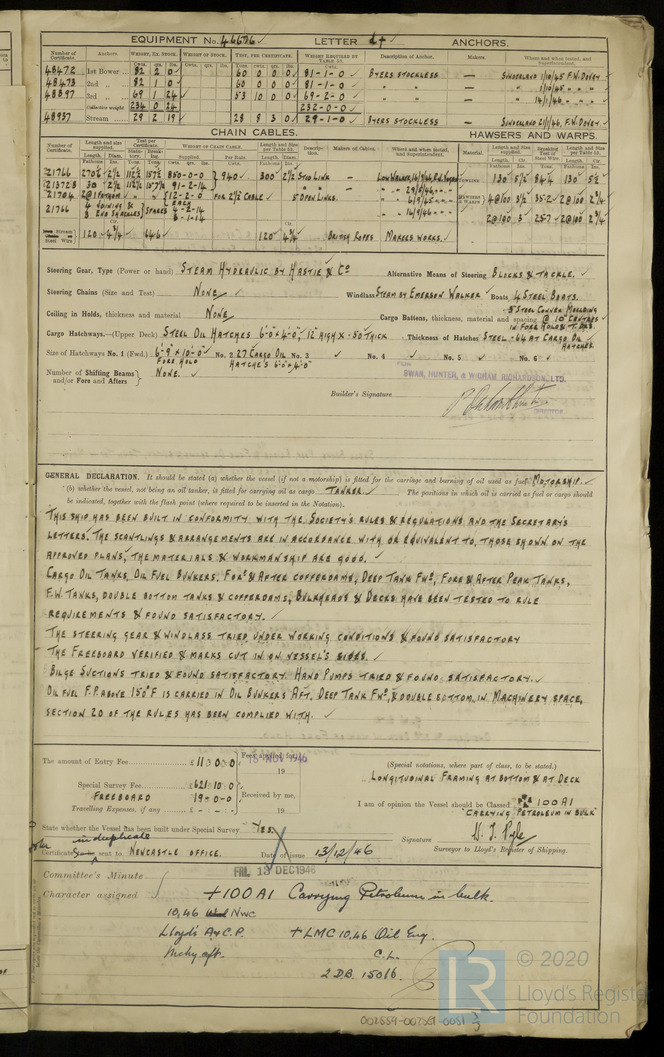 EQUIPMENT No. 44676 LETTER ANCHORS.
Number of Certificate. Anchors. WEIGHT, EX. STOCK. WEIGHT OF STOCK. TEST, PER CERTIFICATE. WEIGHT REQUIRED BY TABLE 53. Description of Anchor. Makers Where and when tested, and Superintendent.
Cwts. qrs. lbs. Cwts. qrs. lbs. Tons. cwts. qrs. lbs. Cwts.
48472 1st Bower 82 2 0 60 0 0 0 81-1-0 BYERS STOCKLESS — SUNDERLAND 1/10/45 F.W. DOREY
48473 2nd „ 82 1 0 60 0 0 0 81-1-0 " " — " 1/10/45 " "
48897 3rd „ 69 1 24 53 10 0 0 69-2-0 " " — " 14/1/46 " "
Collective weight 234 0 24 232-0-0
48937 Stream 29 2 19 28 8 3 0 29-1-0 BYERS STOCKLESS — SUNDERLAND 2/1/46, F.W. DOREY
CHAIN CABLES. HAWSERS AND WARPS.
Number of Certificate. Length and size supplied. Test per Certificate. WEIGHT OF CHAIN CABLE. Length and size per Table 53. Description. Makers of Cables. Where and when tested, and Superintendent. Material Length and Size supplied. Breaking Test of Steel Wire. Length and Size per Table 53.
Length. Diam. Statutory. Breaking. Supplied. Per Rule. Length. Diam.
21766 270 2 1/2 112 1/2 157 1/2 850-0-0 940 300 2 1/2 STUD LINK — 130 5 1/2 84.4 130 5 1/2
213728 30 2 1/2 112 1/2 157 1/2 91-2-14
21704 2@1 FATHOM 12-2-0 FOR 2 1/2 CABLE 5 OPEN LINKS. 4@100 3 1/2 35.2 2@100 2 3/4
21766 4 JOINING & 2 END SHACKLES SPARES 4-2-14 2@100 3 25.7 2@100 2 3/4
Stream or Steel Wire 120 4 3/4 64.6 120 4 3/4 BRITISH ROPES MAKERS WORKS.
Steering Gear, Type (Power or hand) STEAM HYDRAULIC BY HASTIE & CO Alternative Means of Steering BLOCKS & TACKLE.
Steering Chains (Size and Test) NONE Windlass STEAM BY EMERSON WALKER Boats 4 STEEL BOATS.
Ceiling in Holds, thickness and material NONE Cargo Battens, thickness, material and spacing 5 STEEL CONVEX MOULDING @ 10" CENTRES IN FORE HOLD & T. DKS.
Cargo Hatchways.—(Upper Deck) STEEL OIL HATCHES 6'-0"x4'-0", 12" HIGH x .50 THICK Thickness of Hatches STEEL .64 AT CARGO OIL HATCHES.
Size of Hatchways No. 1 (Fwd.) 6'-9" x 10'-0" FORE HOLD No. 2 27 CARGO OIL HATCHES 6'-0"x4'-0" No. 3 No. 4 No. 5 No. 6
Number of Shifting Beams and/or Fore and Afters NONE.
FOR
SWAN, HUNTER, & WIGHAM RICHARDSON, LTD.
Builder's Signature
DIRECTOR
GENERAL DECLARATION. It should be stated (a) whether the vessel (if not a motorship) is fitted for the carriage and burning of oil used as fuel MOTORSHIP.
(b) whether the vessel, not being an oil tanker, is fitted for carrying oil as cargo TANKER The positions in which oil is carried as fuel or cargo should
be indicated, together with the flash point (where required to be inserted in the Notation).
THIS SHIP HAS BEEN BUILT IN CONFORMITY WITH THE SOCIETY'S RULES & REGULATIONS AND THE SECRETARY'S
LETTERS. THE SCANTLINGS & ARRANGEMENTS ARE IN ACCORDANCE WITH OR EQUIVALENT TO, THOSE SHOWN ON THE
APPROVED PLANS, THE MATERIALS & WORKMANSHIP ARE GOOD.
CARGO OIL TANKS, OIL FUEL BUNKERS, FORd & AFTER COFFERDAMS, DEEP TANK FWd, FORE & AFTER PEAK TANKS,
F.W. TANKS, DOUBLE BOTTOM TANKS & COFFERDAMS, BULKHEADS & DECKS HAVE BEEN TESTED TO RULE
REQUIREMENTS & FOUND SATISFACTORY.
THE STEERING GEAR & WINDLASS TRIED UNDER WORKING CONDITIONS & FOUND SATISFACTORY
THE FREEBOARD VERIFIED & MARKS CUT IN ON VESSEL'S SIDES.
BILGE SUCTIONS TRIED & FOUND SATISFACTORY. HAND PUMPS TRIED & FOUND SATISFACTORY.
OIL FUEL F.P. ABOVE 150°F IS CARRIED IN OIL BUNKERS AFT, DEEP TANK FWd, & DOUBLE BOTTOM, IN MACHINERY SPACE,
SECTION 20 OF THE RULES HAS BEEN COMPLIED WITH.
The amount of Entry Fee £11 0 0 Fees applied for, 15 NOV 1946 19
Special Survey Fee £621 10 0
FREEBOARD 19-0-0 Received by me,
Travelling Expenses, if any £ - : - : 19
(Special notations, where part of class, to be stated.)
LONGITUDINAL FRAMING AT BOTTOM & AT DECK
I am of opinion the Vessel should be Classed 100A1
"CARRYING PETROLEUM IN BULK"
State whether the Vessel has been built under Special Survey Yes.
in duplicate
Certificate sent to NEWCASTLE OFFICE. Date of issue 13/12/46
Signature
Surveyor to Lloyd's Register of Shipping.
Committee's Minute FRI. 13 DEC 1946
Character assigned +100A1 Carrying Petroleum in bulk.
10,46 Nwc
Lloyd's A & C.P. +LMC 10.46 Oil Eng.
Mchy. aft. C.L.
2 D.B. 150 lb.
LR © 2020
Lloyd's Register
Foundation
002559-002569-0051 2/3